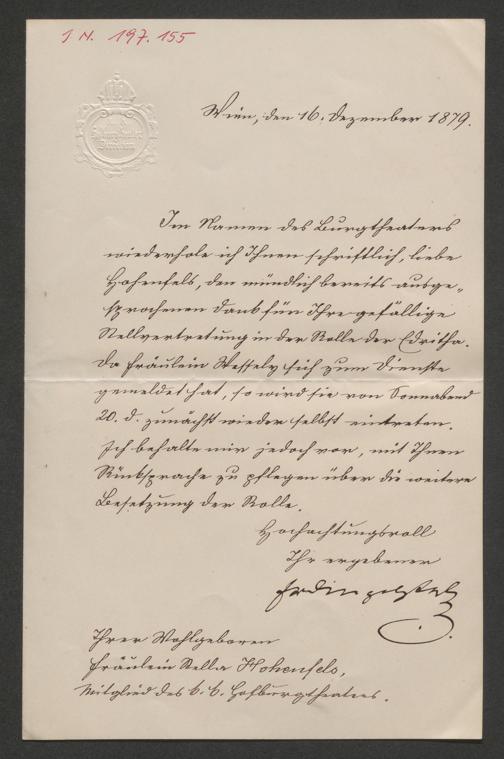 I N. 197.155
Wien, den 16. Dezember 1879.
Im Namen des Burgtheaters
wiederhole ich Ihnen schriftlich, liebe
Hohenfels, den mündlich bereits ausge-
sprochenen Dank für Ihre gefällige
Stellvertretung in der Rolle der Edritha.
Da Fräulein Wessely sich zum Dienste
gemeldet hat, so wird sie von Sonnabend
20. d. zunächst wieder selbst eintreten.
Ich behalte mir jedoch vor, mit Ihnen
Rücksprache zu pflegen über die weitere
Besetzung der Rolle.
Hochachtungsvoll
Ihr ergebener
Ihrer Wohlgeboren
Fräulein Stella Hohenfels,
Mitglied des k. k. Hofburgtheaters.